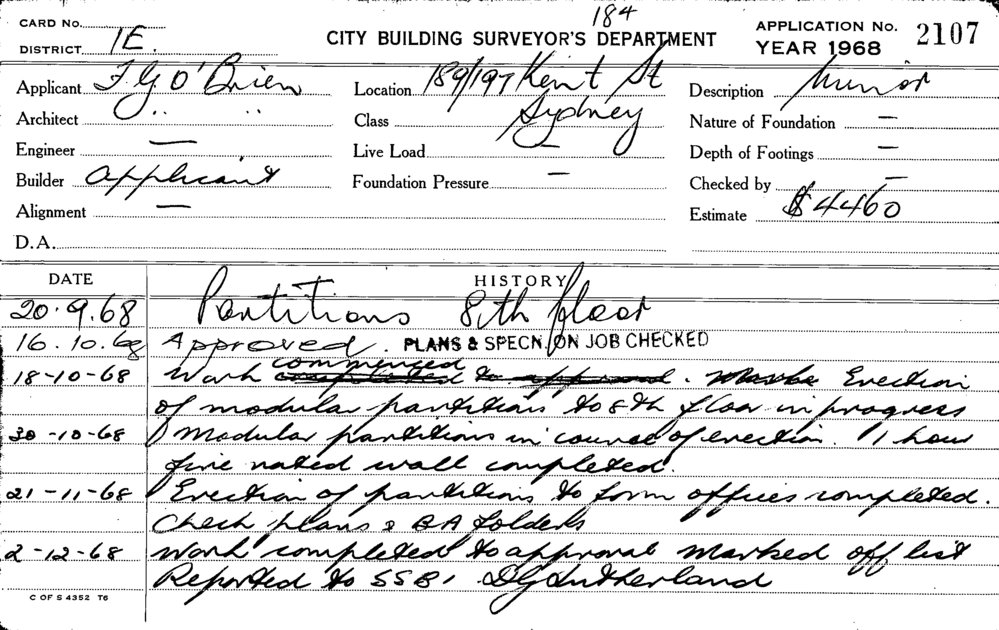 184
CARD No.
DISTRICT 1E.
CITY BUILDING SURVEYOR'S DEPARTMENT
APPLICATION No. 2107
YEAR 1968
Applicant F. G. O'Brien
Location 189/197 Kent St
Description Minor
Architect " "
Class Sydney
Nature of Foundation —
Engineer —
Live Load
Depth of Footings —
Builder Applicant
Foundation Pressure —
Checked by —
Alignment —
Estimate $4460
D.A.
DATE HISTORY
20.9.68 Partitions 8th floor
16.10.68 Approved. PLANS & SPECN. ON JOB CHECKED
commenced
18-10-68 Work completed to approval. Erection
of modular partitions to 8th floor in progress
30-10-68 Modular partitions in course of erection. 1 hour
fire rated wall completed.
21-11-68 Erection of partitions to form offices completed.
Check plans & BA folders
2-12-68 Work completed to approval marked off list
Reported to SSB1 DG Sutherland
C OF S 4352 T6